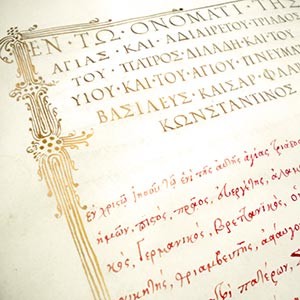 ΕΝ · ΤΩ · ΟΝΟΜΑΤΙ · ΤΗΣ
ΑΓΙΑΣ · ΚΑΙ · ΑΔΙΑΙΡΕΤΟΥ · ΤΡΙΑΔΟΣ
ΤΟΥ · ΠΑΤΡΟΣ ΔΗΛΑΔΗ · ΚΑΙ · ΤΟΥ
ΥΙΟΥ · ΚΑΙ · ΤΟΥ · ΑΓΙΟΥ · ΠΝΕΥΜΑ
ΒΑΣΙΛΕΥΣ · ΚΑΙΣΑΡ · ΦΛΑΒ
ΚΩΝΣΤΑΝΤΙΝΟΣ
ἐν χριστῷ Ἰησοῦ τῷ ἑνὶ τῆς αὐτῆς ἁγίας τριάδος
ἡμῶν, πιστὸς, πρᾷος, εὐεργέτης, ἀλαμ
κὸς, Γερμανικὸς, Βρετανικὸς,
νικητὴς, θριαμβευτὴς,
πατέρων,